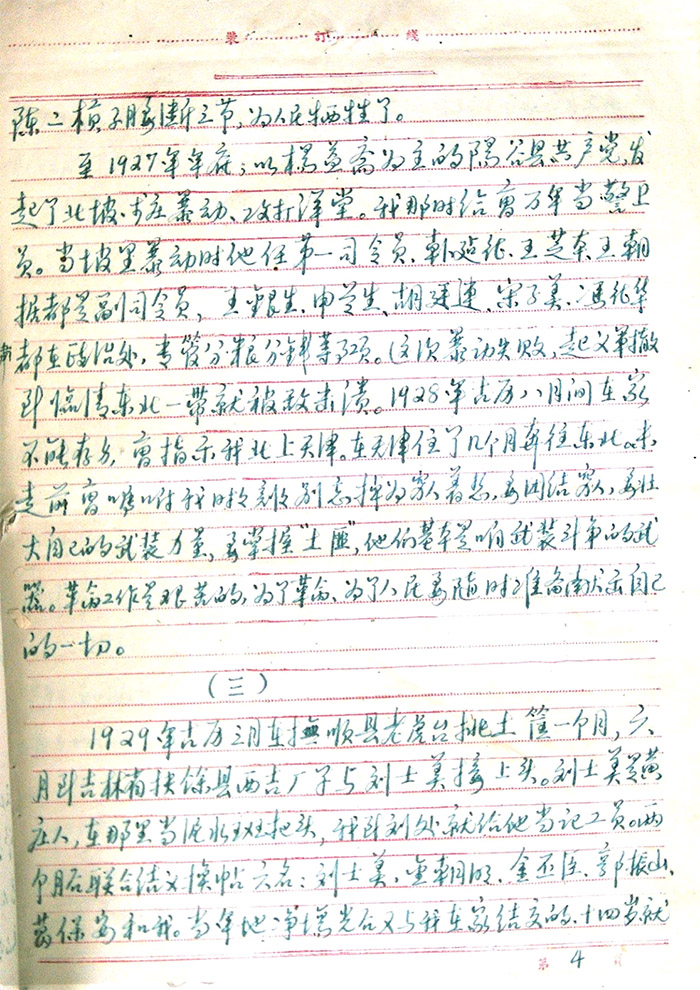 装订线
陈二横子腰断三节,为人民牺牲了。
至1927年年底,以杨益斋为主的阳谷县共产党,发
起了北坡、寸庄暴动、攻打洋堂。我那时给曹万年当警卫
员。当坡里暴动时他任第一司令员、韩建征、王芝本、王朝
据都是副司令员,王银生、申兰生、胡建连、宋子美、冯征华
都在政治处,专管分粮分钱等项。这次暴动失败,起义军撤
到临清东北一带就被敌击溃。1928年古历八月间在家
不能存身,曹指示我北上天津。在天津住了几个月奔往东北。未
走前曹嘱咐我时刻别忘掉为众人着想,要团结众人,要壮
大自己的武装力量,要掌握“土匪”,他们基本是咱武装斗争的武
器。革命工作是艰苦的,为了革命、为了人民要随时准备献出自己
的一切。
(三)
1929年古历三月在抚顺县老虎台挑土筐一个月,六
月到吉林省扶馀县西吉厂子与刘士美接上头。刘士美是黄
庄人,在那里当泥水班把头,我到刘处就给他当记工员。两
个月后联合结义换帖六名:刘士美、金朝明、金丕臣、郭振山、
葛保安和我。当年地净场光后又与我在家结交的、十四岁就
第 4 页